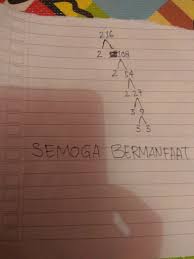 216
2 108
2 54
2 27
3 9
3 3
SEMOGA BERMANFAAT